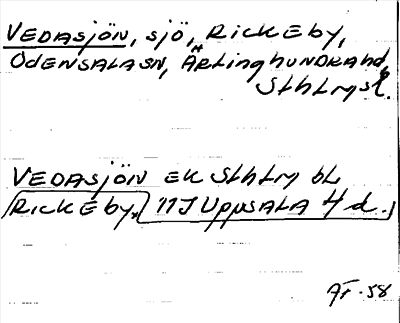 VEDASJÖN, SJÖ, RICKEBY,
ODENSALA SN, ÄRLINGHUNDRA hd,
Sthlms l.
VEDASJÖN EK Sthlm bl
RICKEBY, 11J Uppsala 4 d.
AF-58